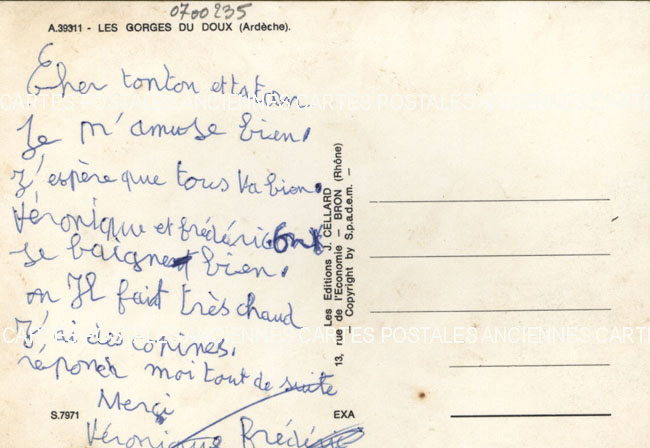 0700235
A.39311 - LES GORGES DU DOUX (Ardèche).
Cher tonton et tata
CARTES POSTALES ANCIENNES CARTES POSTALES ANCIENNES CARTES
Je m'amuse bien.
J'espère que tous va bien.
Véronique et frédéric ont
se baignent bien.
on Il fait très chaud
J'ai des copines.
réponer moi tout de suite
Merçi
Véronique Frédéric
CARTES POSTALES ANCIENNES CARTES POSTALES ANCIENNES CARTES
Les Editions J. CELLARD
13, rue de l'Economie - BRON (Rhône)
- Copyright by S.p.a.d.e.m. -
S.7971
EXA